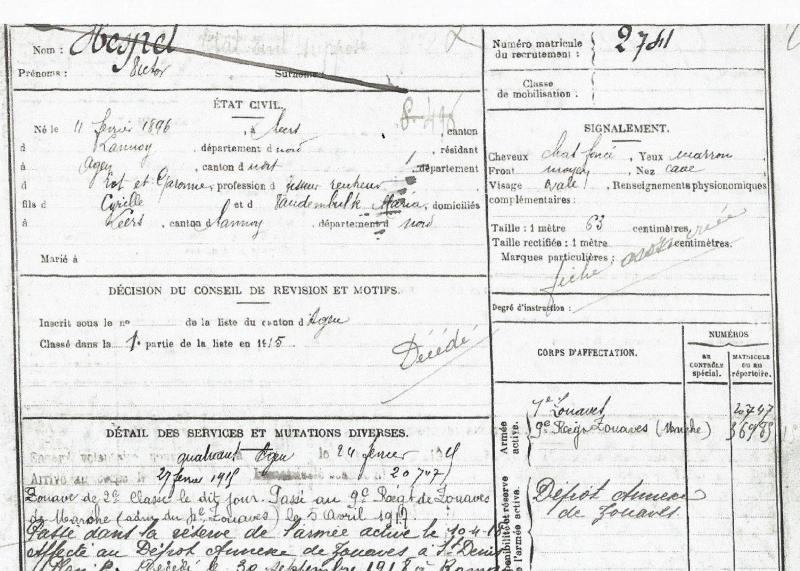 Nom : Hespel
Prénoms : Victor Surnoms :
Numéro matricule du recrutement : 2741
Classe de mobilisation :
ÉTAT CIVIL.
Né le 11 février 1896, à Leers canton
d Lannoy, département d nord, résidant
à Agen, canton d nort département
d Lot et Garonne, profession d
fils d Cyrille et d Vandembulk Maria, domiciliés
à Leers, canton d Lannoy, département d nord
Marié à
SIGNALEMENT.
Cheveux chat. foncé, Yeux marron
Front moyen, Nez cave
Visage ovale, Renseignements physionomiques
complémentaires :
Taille : 1 mètre 63 centimètres.
Taille rectifiée : 1 mètre centimètres.
Marques particulières :
fiche
Degré d'instruction :
DÉCISION DU CONSEIL DE REVISION ET MOTIFS.
Inscrit sous le no de la liste du canton d'Agen
Classé dans la 1e partie de la liste en 1915
Décédé
CORPS D'AFFECTATION.
NUMÉROS
AU CONTRÔLE spécial.
MATRICULE OU AU répertoire.
Armée active.
7e Zouaves 20747
9e Régt Zouaves (Marche)
l'armée active.
Dépôt Annexe
de Zouaves
DÉTAIL DES SERVICES ET MUTATIONS DIVERSES.
Agen le 24 février
Arrivé au corps le 27 février 1915 20747
Zouave de 2e Classe le dit jour. Passé au 9e Régt de Zouaves
de Marche (adm du Zouaves) le 5 Avril
Passé dans la réserve de l'armée active le 10-4-18
Affecté au Dépôt Annexe de Zouaves à St Denis
le 30 septembre 1918 à